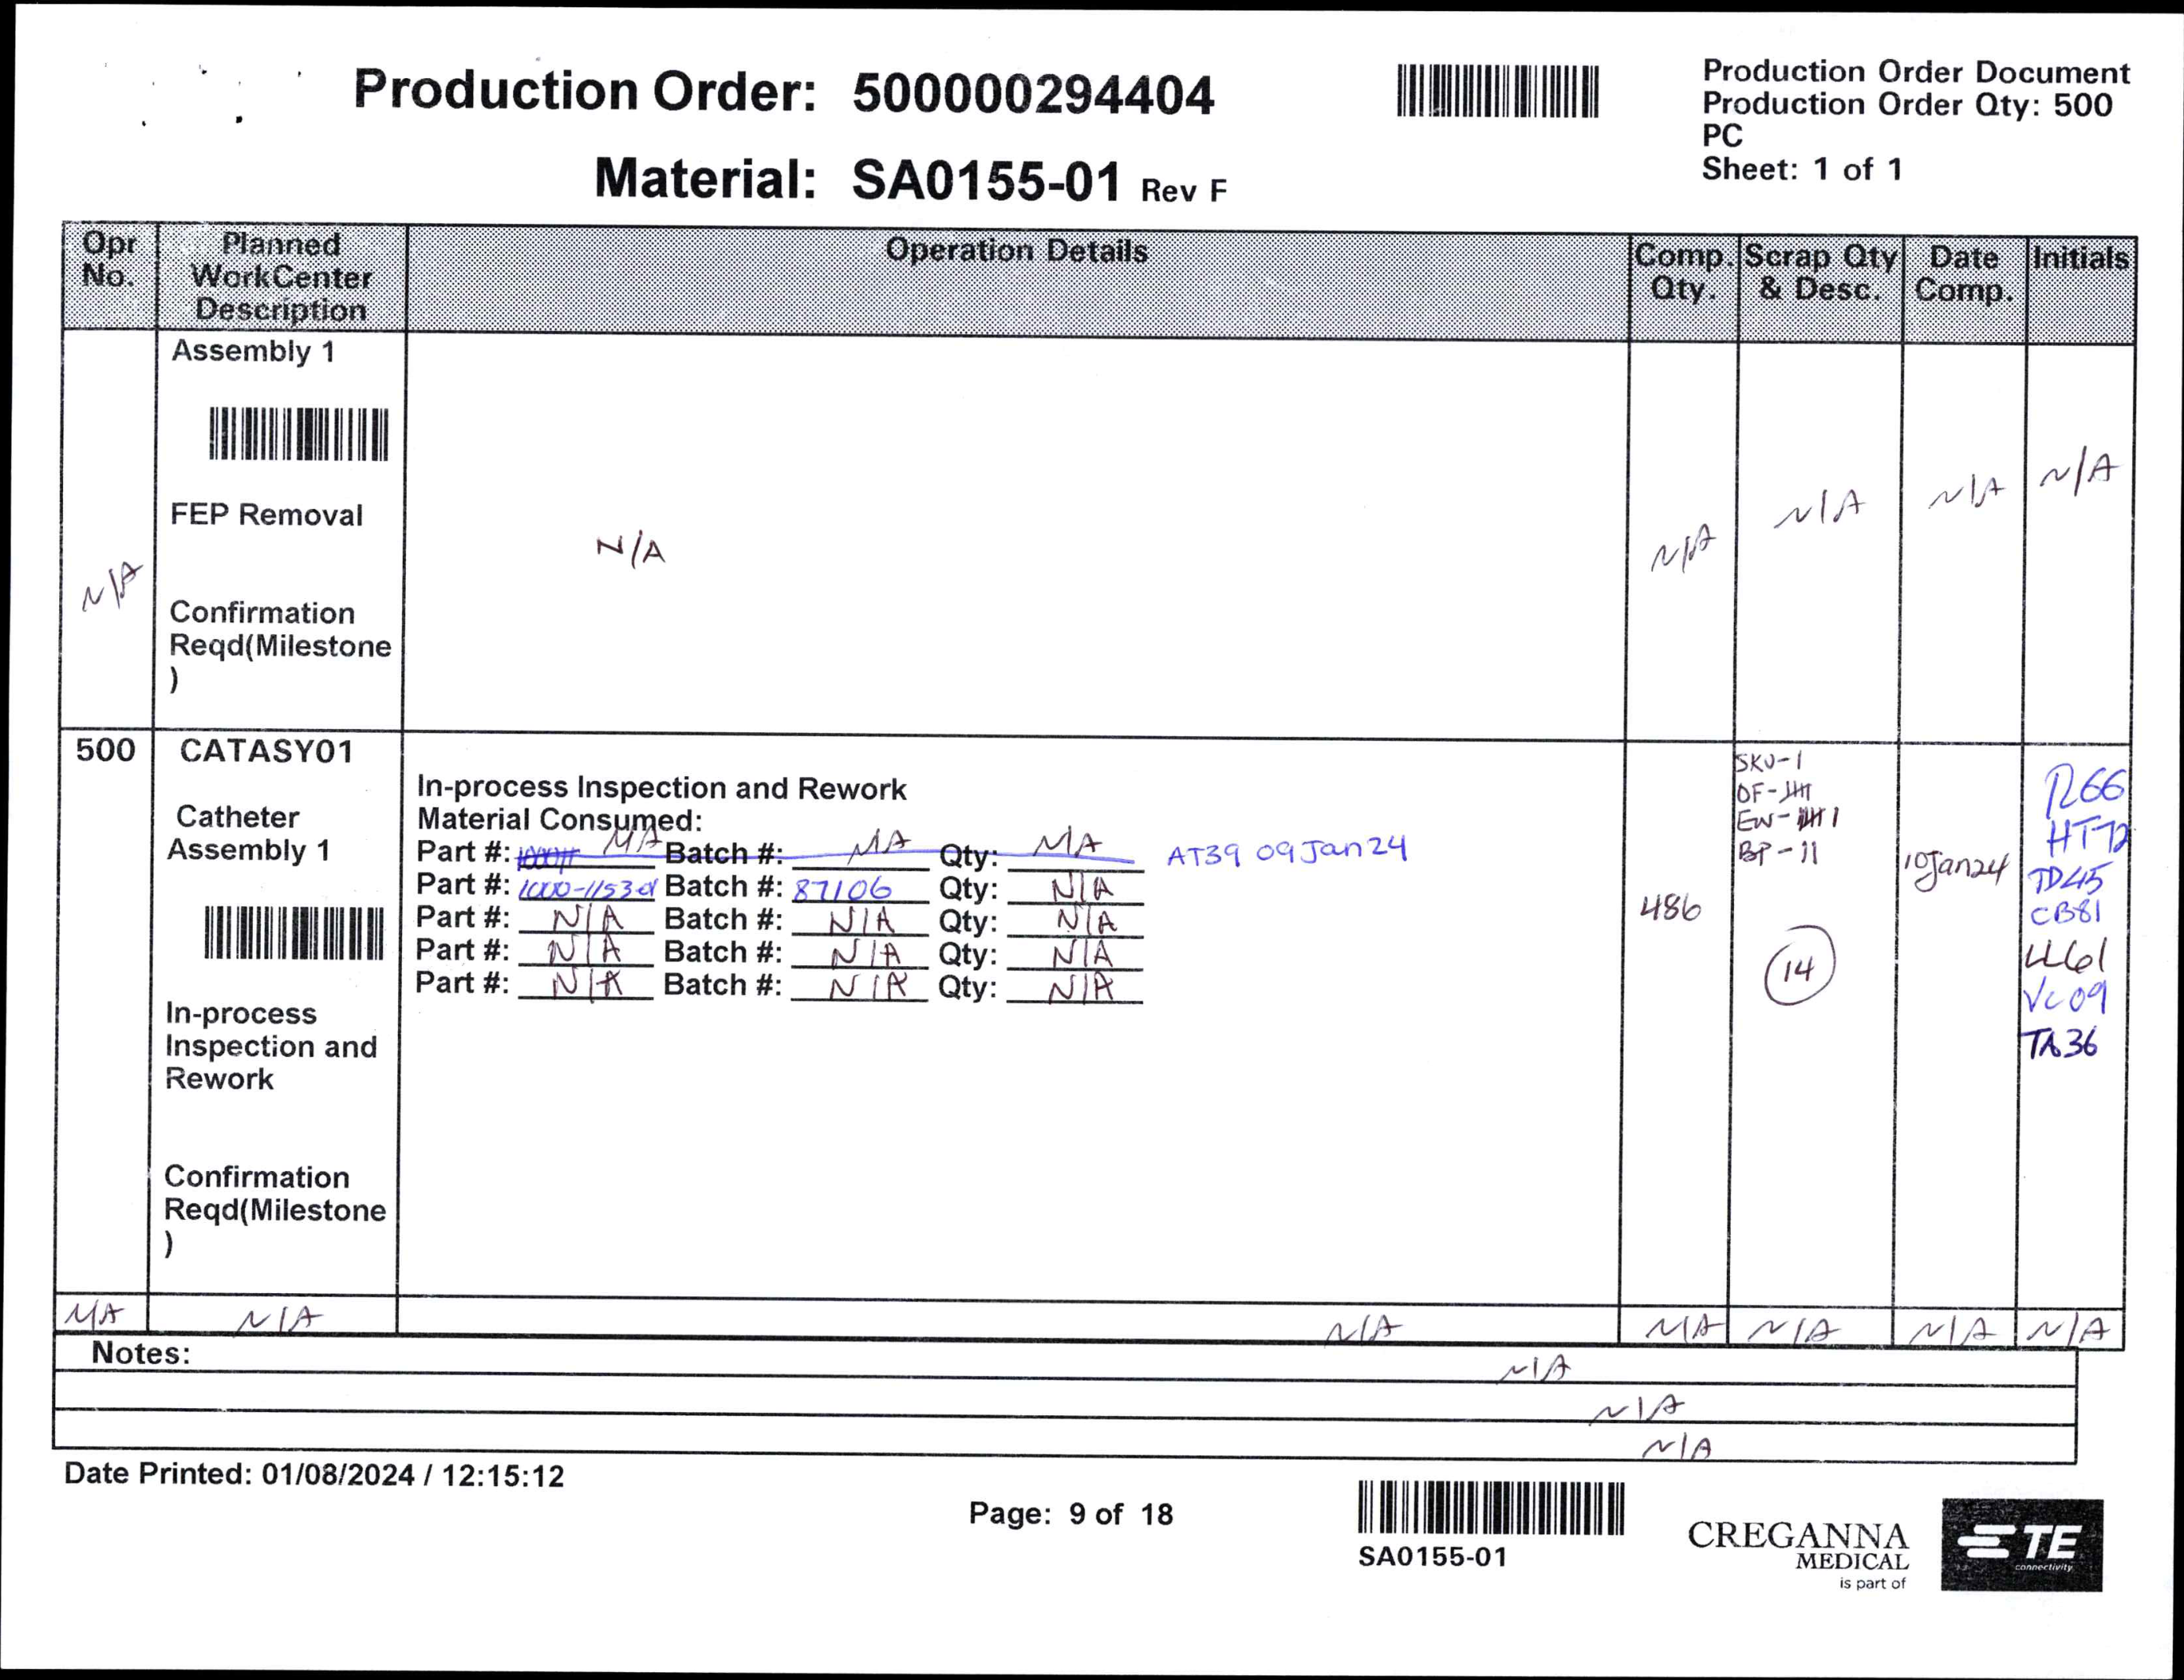 Production Order: 500000294404
Production Order Document
Production Order Qty: 500
PC
Sheet: 1 of 1
Material: SA0155-01 Rev F
Opr No.
Planned WorkCenter Description
Operation Details
Comp. Qty.
Scrap Qty & Desc.
Date Comp.
Initials
N/A
Assembly 1
FEP Removal
Confirmation
Reqd(Milestone
)
N/A
N/A
N/A
N/A
N/A
500
CATASY01
Catheter
Assembly 1
In-process
Inspection and
Rework
Confirmation
Reqd(Milestone
)
In-process Inspection and Rework
Material Consumed:
Part #: N/A Batch #: N/A Qty: N/A AT39 09Jan24
Part #: 1000-1153-01 Batch #: 87106 Qty: N/A
Part #: N/A Batch #: N/A Qty: N/A
Part #: N/A Batch #: N/A Qty: N/A
Part #: N/A Batch #: N/A Qty: N/A
486
SKU-1
OF-
EW-
BP-11
14
10Jan24
HT72
TD45
CB81
LL61
VC09
TA36
N/A N/A N/A N/A N/A N/A N/A
Notes:
N/A
N/A
N/A
Date Printed: 01/08/2024 / 12:15:12
Page: 9 of 18
SA0155-01
CREGANNA
MEDICAL
is part of
TE
connectivity